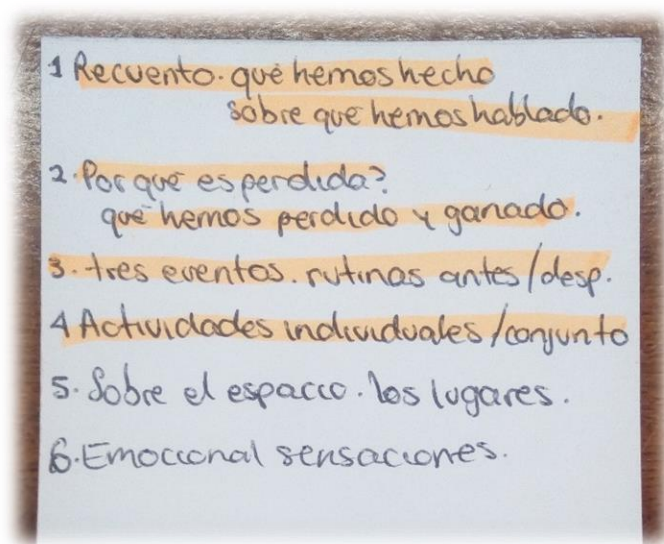 1 Recuento. qué hemos hecho
sobre que hemos hablado.
2. Por qué es perdida?
que hemos perdido y ganado.
3. tres eventos. rutinas antes/desp.
4 Actividades individuales/conjunto
5. Sobre el espacio. los lugares.
6. Emocional sensaciones.